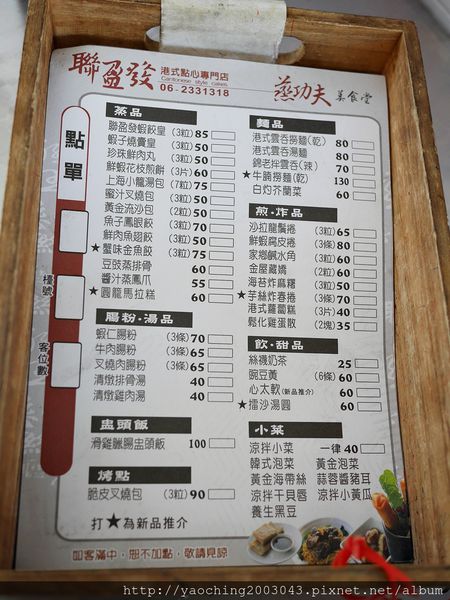 聯盈發 港式點心專門店
Cantonese style cakes
06-2331318
蒸功夫 美食堂
點單
檯號
客位數
蒸品
聯盈發蝦餃皇 (3粒) 85
蝦子燒賣皇 (3粒) 50
珍珠鮮肉丸 (3粒) 50
鮮蝦花枝煎餅 (3片) 60
上海小籠湯包 (7粒) 75
蜜汁叉燒包 (3粒) 50
黃金流沙包 (2粒) 50
魚子鳳眼餃 (3粒) 50
鮮肉魚翅餃 (3粒) 50
★蟹味金魚餃 (3粒) 75
豆豉蒸排骨 60
醬汁蒸鳳爪 55
★圓籠馬拉糕 60
腸粉・湯品
蝦仁腸粉 (3條) 70
牛肉腸粉 (3條) 65
叉燒腸粉 (3條) 65
清燉排骨湯 40
清燉雞肉湯 40
盅頭飯
滑雞臘腸盅頭飯 100
烤點
脆皮叉燒包 (3粒) 90
打★為新品推介
如客滿中，恕不加點，敬請見諒
麵品
港式雲吞撈麵(乾) 80
港式雲吞湯麵 80
錦老拌雲吞(辣) 70
★牛腩撈麵(乾) 130
白灼芥蘭菜 60
煎・炸品
沙拉龍鬚捲 (3粒) 65
鮮蝦腐皮捲 (3條) 80
家鄉鹹水角 (3粒) 60
金屋藏嬌 (2粒) 60
海苔炸麻糬 (3粒) 50
★芋絲炸春捲 (3條) 70
港式蘿蔔糕 (3片) 40
鬆化雞蛋散 (2塊) 35
飲・甜品
絲襪奶茶 25
豌豆黃 (6條) 60
心太軟(新品推介) 60
★擂沙湯圓 60
小菜
涼拌小菜 一律 40
韓式泡菜 黃金泡菜
黃金海帶絲 蒜蓉醬豬耳
涼拌干貝唇 涼拌小黃瓜
養生黑豆
http://yaoching2003043.pixnet.net/album